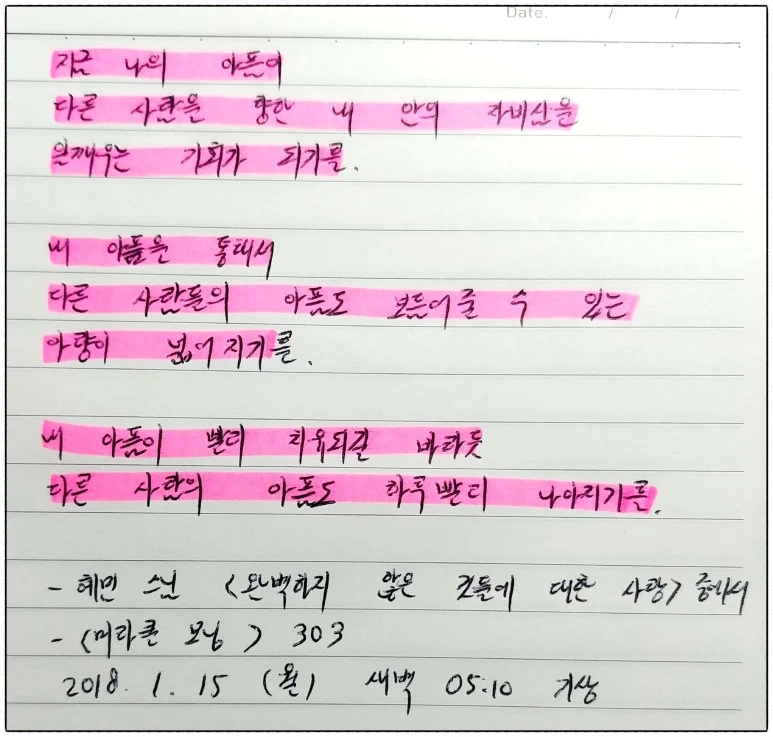 Date. / /
지금 나의 아픔이
다른 사람을 향한 내 안의 자비심을
일깨우는 기회가 되기를.
내 아픔을 통해서
다른 사람들의 아픔도 보듬어줄 수 있는
아량이 넓어지기를.
내 아픔이 빨리 치유되길 바라듯
다른 사람의 아픔도 하루빨리 나아지기를.
- 혜민 스님 <완벽하지 않은 것들에 대한 사랑> 중에서
- <미라클 모닝> 303
2018. 1. 15 (월) 새벽 05:10 기상